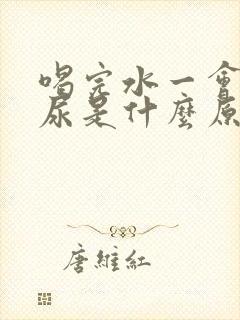 喝完水一會
尿是什麼原
唐維紅